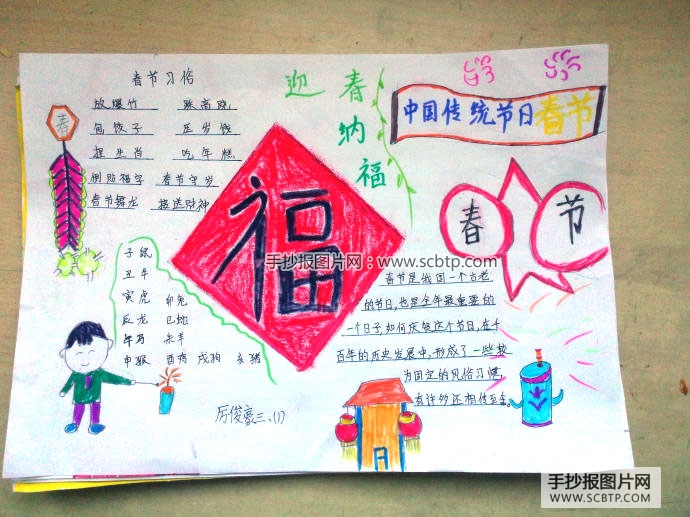 春节习俗
放爆竹 踩高跷
包饺子 压岁钱
捏生肖 吃年糕
倒贴福字 春节守岁
春节舞龙 接送财神
春
迎春纳福
中国传统节日春节
春节
福
手抄报图片网:www.scbtp.com
子鼠
丑牛
寅虎 卯兔
辰龙 巳蛇
午马 未羊
申猴 酉鸡 戌狗 亥猪
春节是我国一个古老
的节日,也是全年最重要的
一个日子,如何庆祝这个节日,在千
百年的历史发展中,形成了一些较
为固定的风俗习惯,
有许多还相传至今。
厉俊豪三.(1)
手抄报图片网
WWW.SCBTP.COM